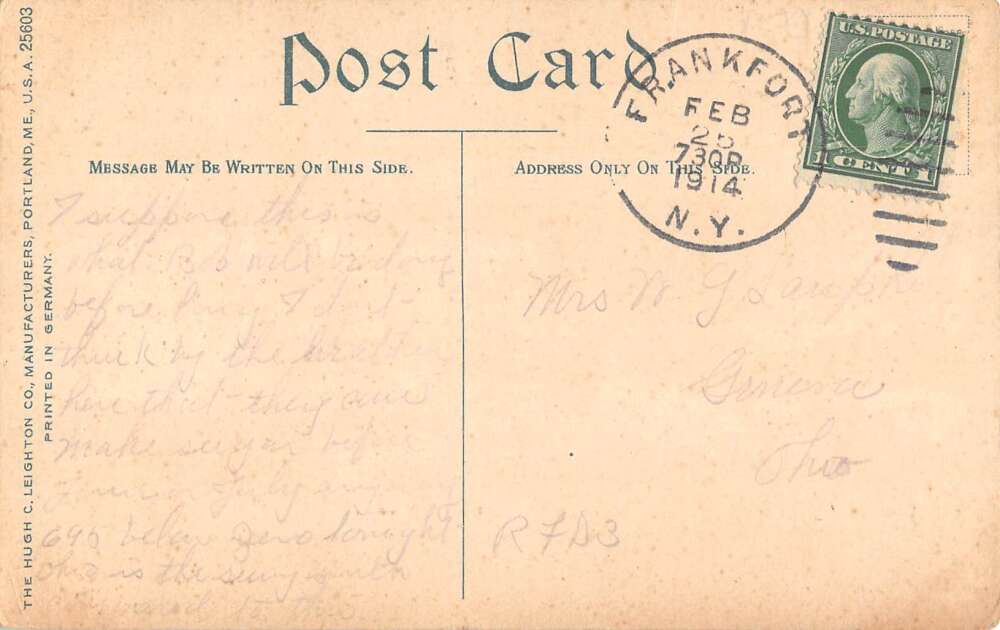 Post Card
MESSAGE MAY BE WRITTEN ON THIS SIDE.
ADDRESS ONLY ON THIS SIDE.
THE HUGH C. LEIGHTON CO., MANUFACTURERS, PORTLAND, ME., U.S.A. 25603
PRINTED IN GERMANY.
FRANKFORT
FEB
25
730P
1914
N.Y.
U.S. POSTAGE
1 CENT 1
I suppose this is
what Bob will be doing
before long I don't
think by the weather
here that they can
make sugar before
June or July anyway
below zero tonight
Ohio is the sunny south
compared to this
Mrs W G
Geneva
Ohio
R F D 3